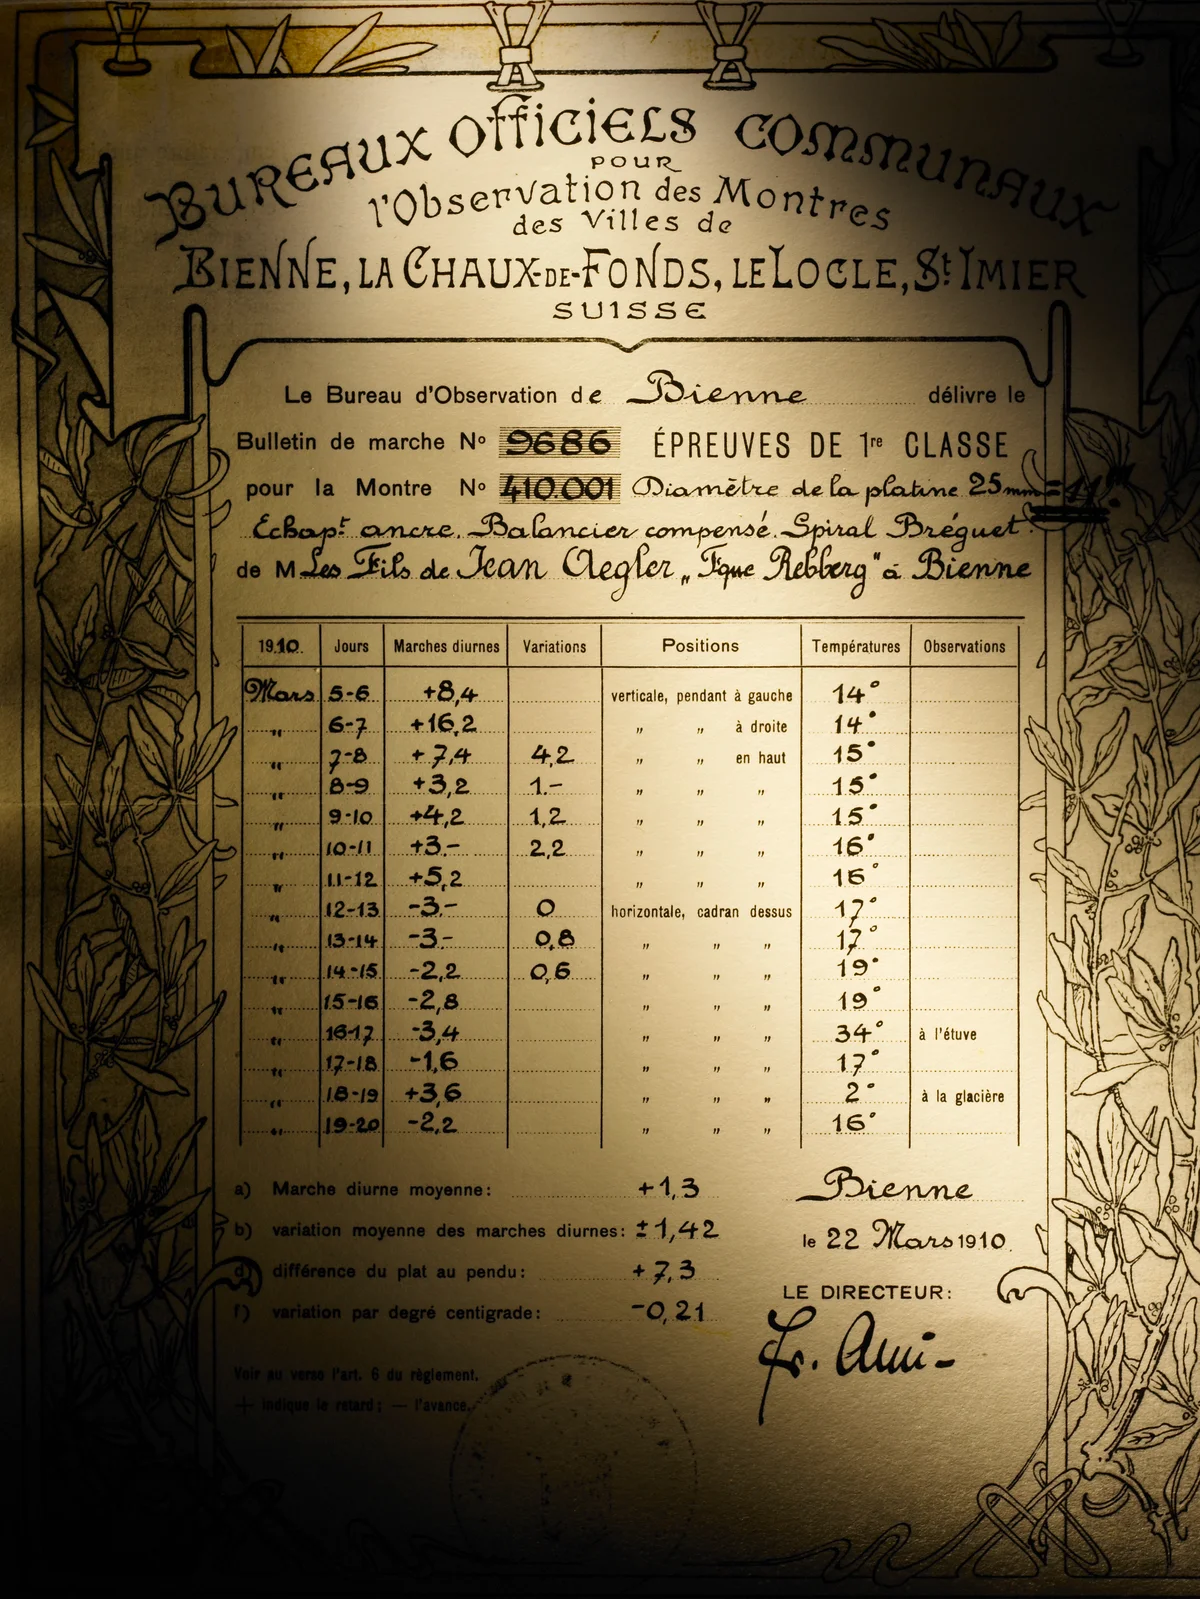 BUREAUX OFFICIELS COMMUNAUX
POUR
l'Observation des Montres
des Villes de
BIENNE, LA CHAUX-DE-FONDS, LE LOCLE, St IMIER
SUISSE
Le Bureau d'Observation de Bienne délivre le
Bulletin de marche No 9686 ÉPREUVES DE 1re CLASSE
pour la Montre No 410.001 Diamètre de la platine 25mm = 11'''
Echapt ancre. Balancier compensé. Spiral Bréguet.
de M Les Fils de Jean Aegler „Fque Rebberg" à Bienne
1910. Jours Marches diurnes Variations Positions Températures Observations
Mars 5-6 +8,4 verticale, pendant à gauche 14°
" 6-7 +16,2 " " à droite 14°
" 7-8 +7,4 4,2 " " en haut 15°
" 8-9 +3,2 1.- " " " 15°
" 9-10 +4,2 1,2 " " " 15°
" 10-11 +3.- 2,2 " " " 16°
" 11-12 +5,2 " " " 16°
" 12-13 -3.- 0 horizontale, cadran dessus 17°
" 13-14 -3- 0,8 " " " 17°
" 14-15 -2,2 0,6 " " " 19°
" 15-16 -2,8 " " " 19°
" 16-17 -3,4 " " " 34° à l'étuve
" 17-18 -1,6 " " " 17°
" 18-19 +3,6 " " " 2° à la glacière
" 19-20 -2,2 " " " 16°
a) Marche diurne moyenne: +1,3
b) variation moyenne des marches diurnes: ±1,42
d) différence du plat au pendu: +7,3
f) variation par degré centigrade: -0,21
Voir au verso l'art. 6 du règlement.
+ indique le retard; — l'avance.
Bienne
le 22 Mars 1910.
LE DIRECTEUR: